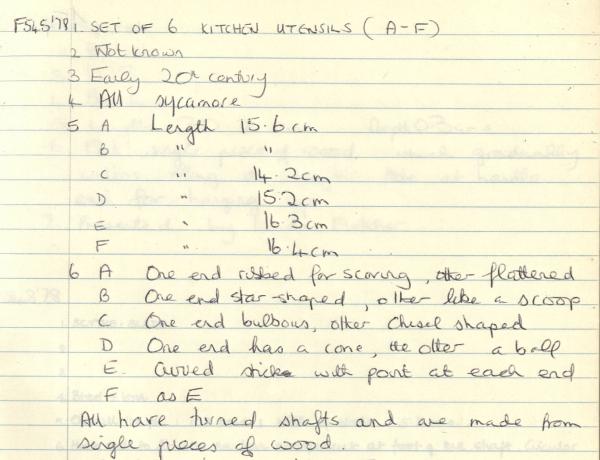 F545'78 1. SET OF 6 KITCHEN UTENSILS (A-F)
2 Not known
3 Early 20th century
4 All sycamore
5 A Length 15.6cm
B " "
C " 14.2cm
D " 15.2cm
E " 16.3cm
F " 16.4cm
6 A One end ribbed for scoring, other flattened
B One end star-shaped, other like a scoop
C One end bulbous, other chisel shaped
D One end has a cone, the other a ball
E. Curved stick with point at each end
F as E
All have turned shafts and are made from
single pieces of wood.